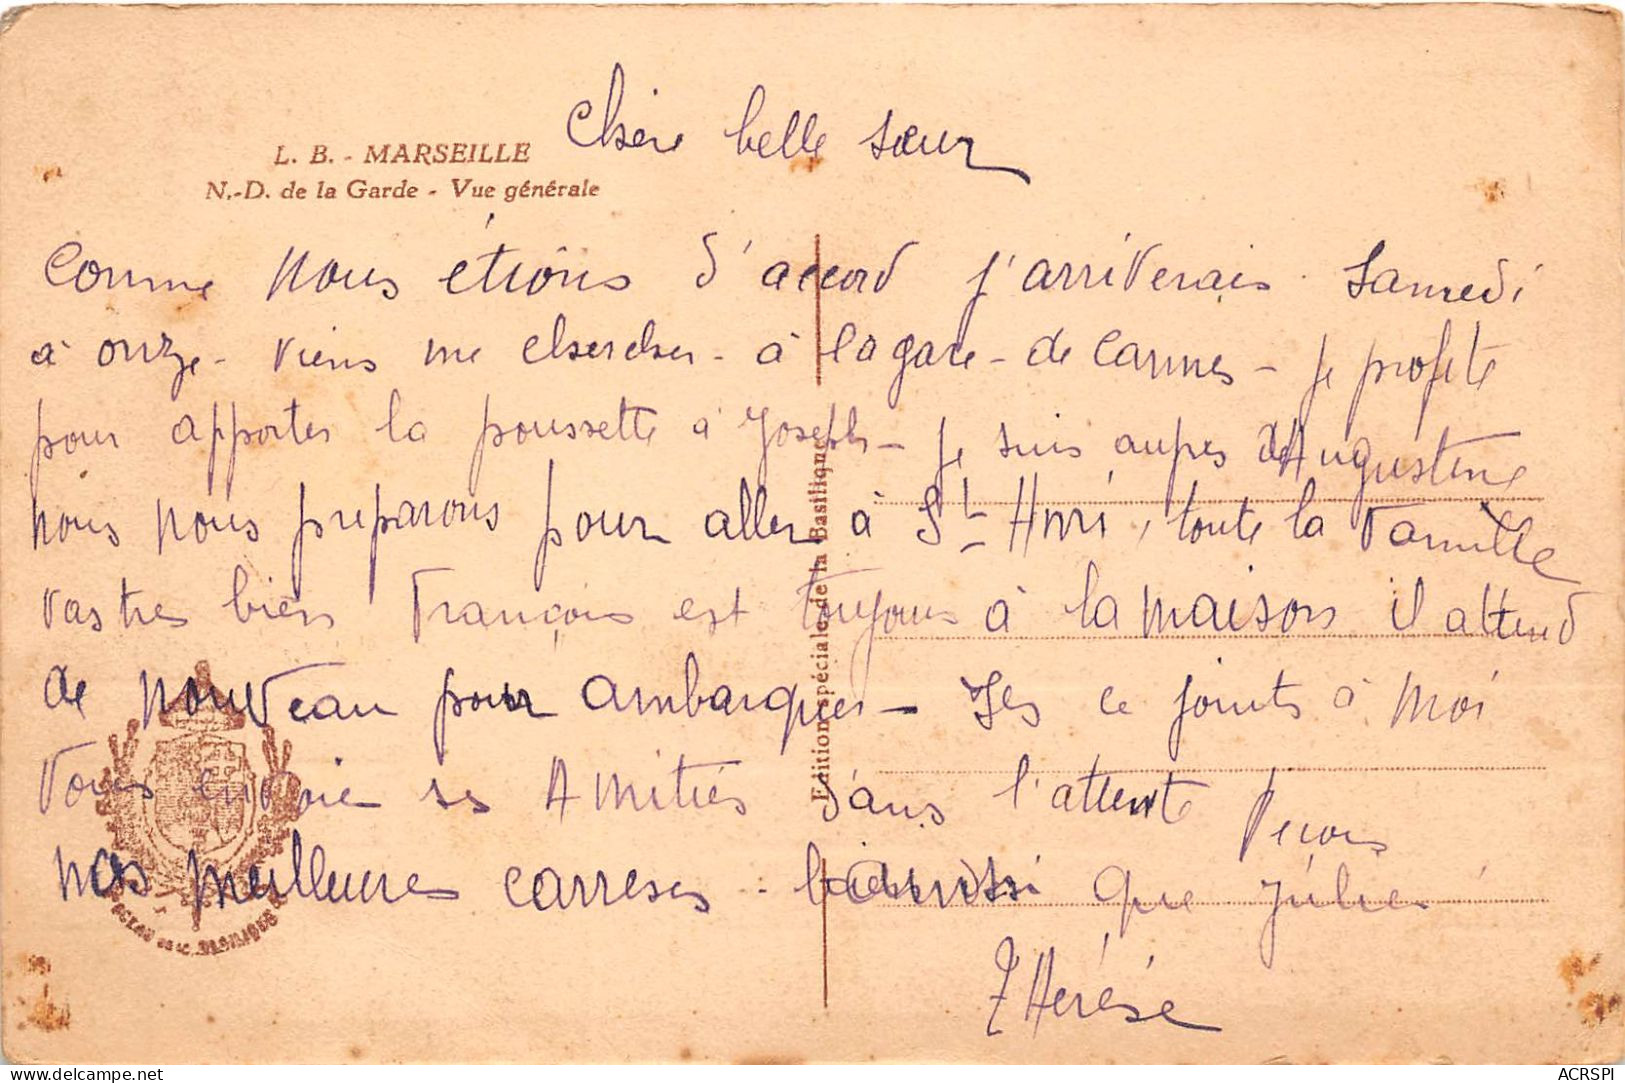 Chère belle sœur
L. B. - MARSEILLE
N.-D. de la Garde - Vue générale
Comme nous étions d'accord j'arriverais Samedi
à onze - viens me chercher - à la gare - de Cannes - je profite
pour apporter la poussette à Joseph - je suis aupres d'Augustine
nous nous preparons pour aller à St Henri, toute la famille
vas tres bien François est toujours à la maison il attend
de nouveau pour ambarquer - Yes ce joints à moi
vous envoie ses Amitiés dans l'attente
nos meilleures carreses - que Julie
THérése
Edition spéciale de la Basilique
ACRSPI